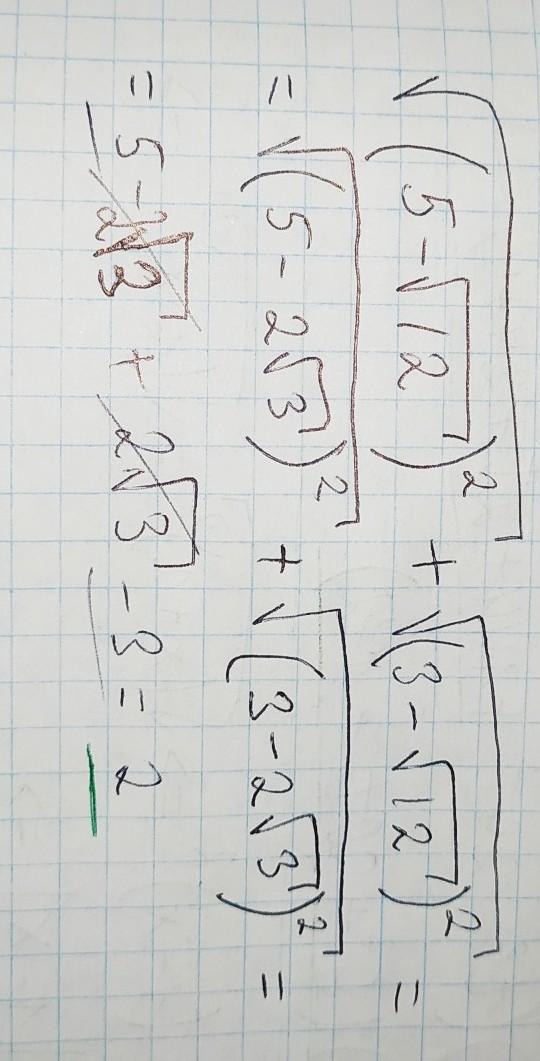 √(5-√12)² + √(3-√12)² =
= √(5-2√3)² + √(3-2√3)² =
= 5-2√3 + 2√3 -3 = 2